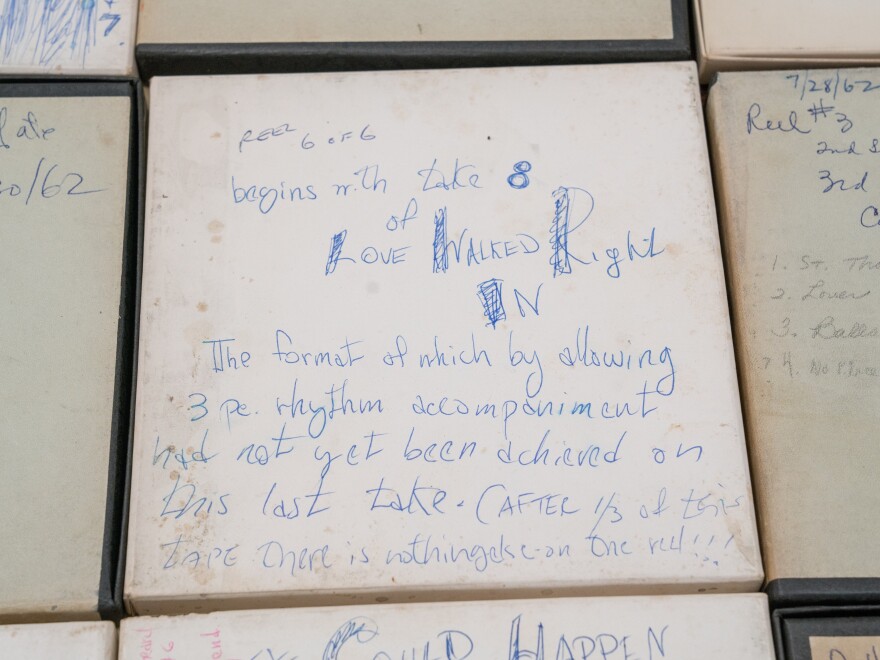 7
REEL 6 OF 6
begins with take 8
of
LOVE WALKED Right
IN
The format of which by allowing
3 pc. rhythm accompaniment
had not yet been achieved on
this last take. (AFTER 1/3 of this
TAPE there is nothing else on the reel!!!
/62
7/28/62
Reel #3
2nd S
3rd
1. ST. Tho
2. Lover
3. Balla
4. No
COULD HAPPEN
end